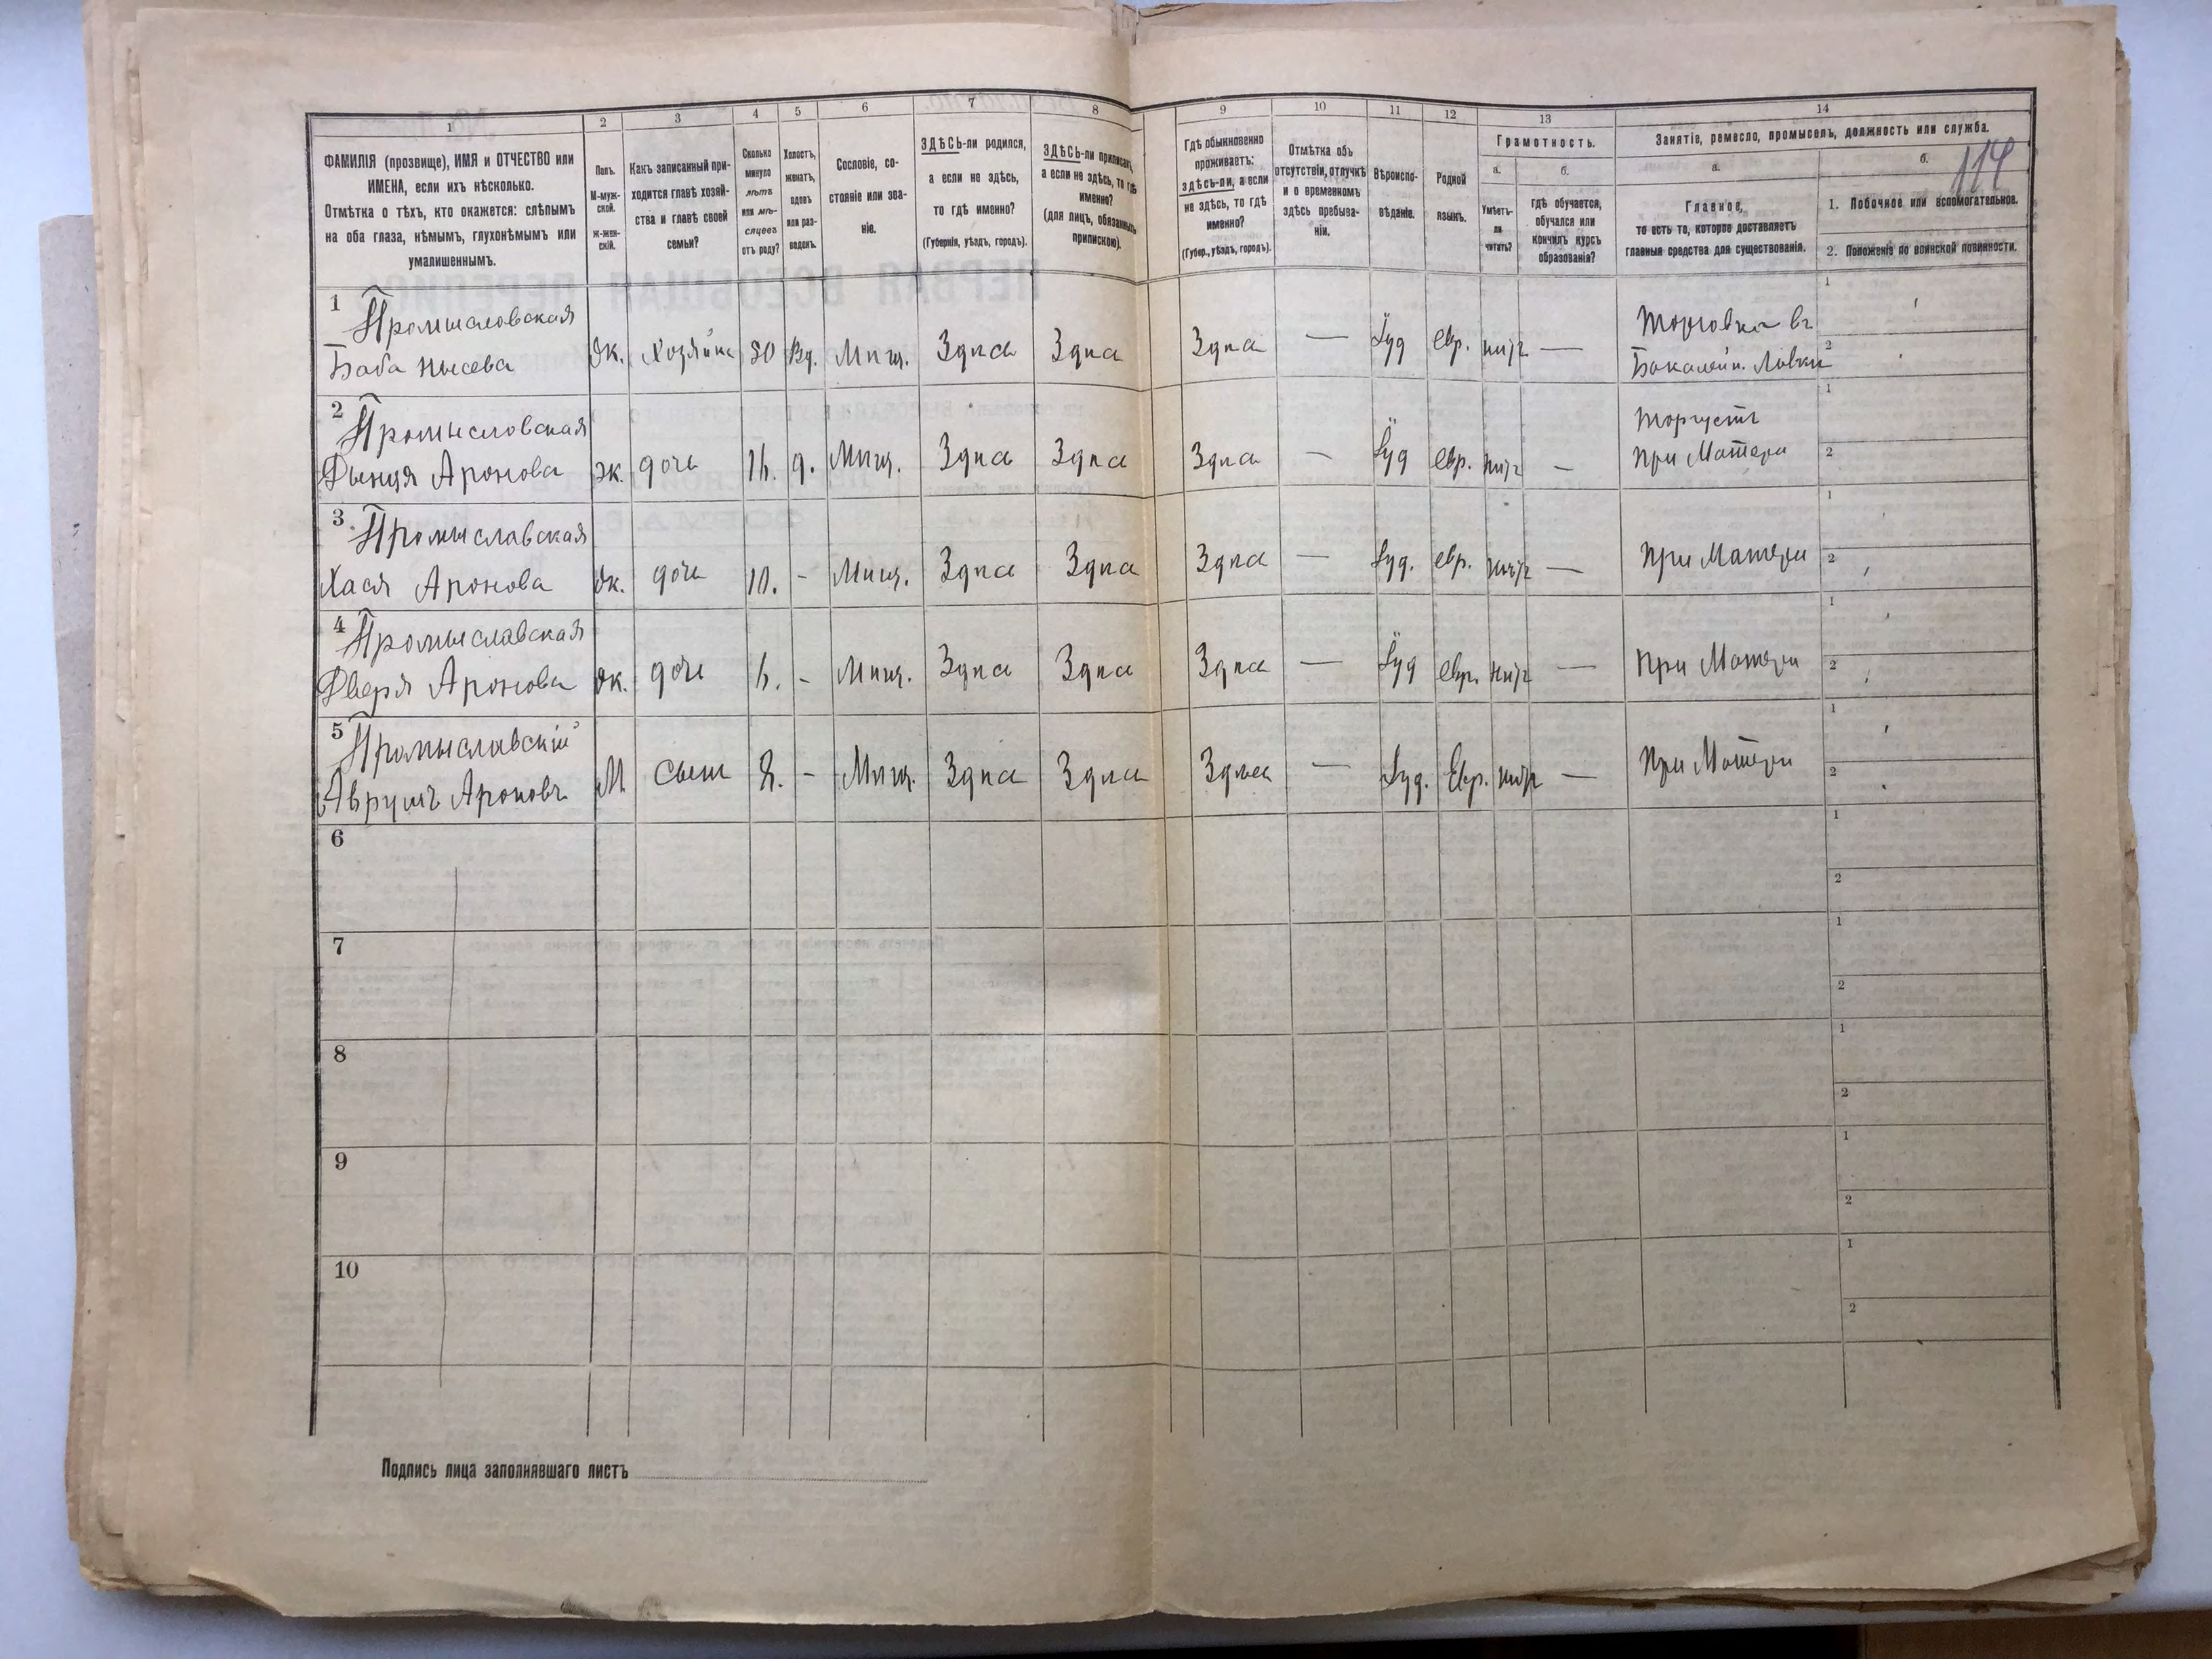 1 2 3 4 5 6 7 8 9 10 11 12 13 14
ФАМИЛІЯ (прозвище), ИМЯ и ОТЧЕСТВО или
ИМЕНА, если ихъ нѣсколько.
Отмѣтка о тѣхъ, кто окажется: слѣпымъ
на оба глаза, нѣмымъ, глухонѣмымъ или
умалишеннымъ.
Полъ.
М-муж-
ской.
Ж-жен-
скій.
Какъ записанный при-
ходится главѣ хозяй-
ства и главѣ своей
семьи?
Сколько
минуло
лѣтъ
или мѣ-
сяцевъ
отъ роду?
Холостъ,
женатъ,
вдовъ
или раз-
веденъ.
Сословіе, со-
стояніе или зва-
ніе.
ЗДѢСЬ-ли родился,
а если не здѣсь,
то гдѣ именно?
(Губернія, уѣздъ, городъ).
ЗДѢСЬ-ли приписанъ,
а если не здѣсь, то гдѣ
именно?
(для лицъ, обязанныхъ
припискою).
Гдѣ обыкновенно
проживаетъ:
здѣсь-ли, а если
не здѣсь, то гдѣ
именно?
(Губер., уѣздъ, городъ).
Отмѣтка объ
отсутствіи, отлучкѣ
и о временномъ
здѣсь пребыва-
ніи.
Вѣроиспо-
вѣданіе.
Родной
языкъ.
Грамотность.
а.
Умѣетъ-
ли
читать?
б.
гдѣ обучается,
обучался или
кончилъ курсъ
образованія?
Занятіе, ремесло, промыселъ, должность или служба.
а.
Главное,
то есть то, которое доставляетъ
главныя средства для существованія.
б.
114
1. Побочное или вспомогательное.
2. Положеніе по воинской повинности.
1 Промысловская
Баба Нысева Ж. Хозяйка Вд. Мѣщ. Здѣсь Здѣсь Здѣсь — Іуд евр. нѣтъ — Торговка въ
Бакалейн. Лавки
1
2
2 Промысловская
Аронова Ж. дочь 16. д. Мѣщ. Здѣсь Здѣсь Здѣсь — Іуд евр. нѣтъ — Торгуетъ
при Матери
1
2
3 Промыславская
Хася Аронова Ж. дочь 10. - Мѣщ. Здѣсь Здѣсь Здѣсь — Іуд. евр. нѣтъ — при Матери
1
2
4 Промыславская
Двера Аронова Ж. дочь 6. - Мѣщ. Здѣсь Здѣсь Здѣсь — Іуд евр. нѣтъ — при Матери
1
2
5 Промыславскій
Аврумъ Ароновъ М сынъ 8. - Мѣщ. Здѣсь Здѣсь Здѣсь — Іуд. Евр. нѣтъ — при Матери
1
2
6
1
2
7
1
2
8
1
2
9
1
2
10
1
2
Подпись лица заполнявшаго листъ